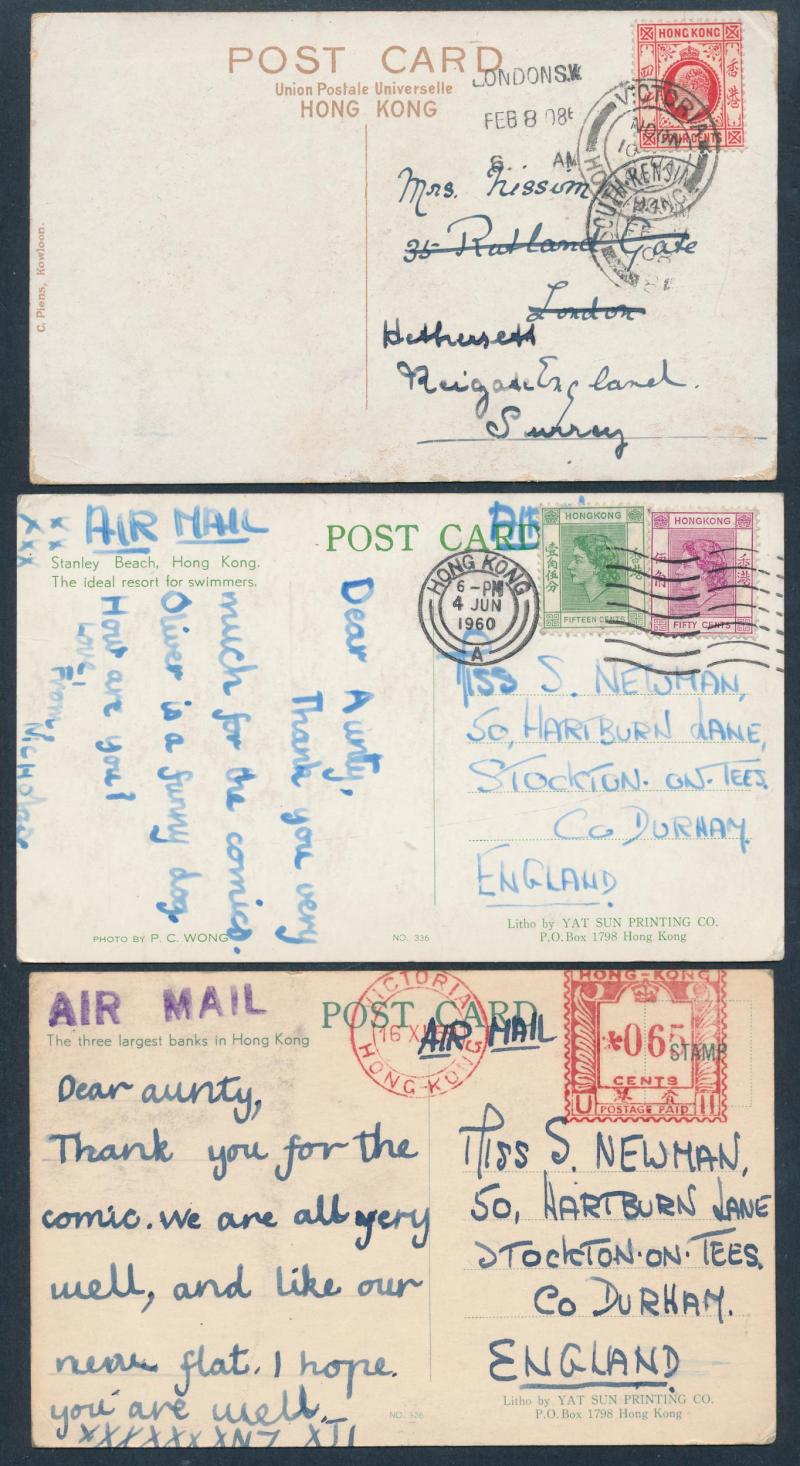 POST CARD
Union Postale Universelle
HONG KONG
LONDON S.W
FEB 8 08
6 AM
HONG KONG
香港
四
FOUR CENTS
VICTORIA
NOON
HONG KONG
SOUTH KENSIN
FE
08
Mrs. Nissom
35 Rutland Gate
London
Hethersett
Reigate England.
Surrey
C. Piens, Kowloon.
XX
XXX
AIR MAIL
POST CARD
Stanley Beach, Hong Kong.
The ideal resort for swimmers.
HONG KONG
6-PM
4 JUN
1960
A
HONGKONG
香港
壹角伍分
FIFTEEN CENTS
HONGKONG
香港
伍角
FIFTY CENTS
Dear Aunty,
Thank you very
much for the comics.
Oliver is a funny dog.
How are you?
love,
From
Nicholas
Miss S. NEWMAN,
50, HARTBURN LANE,
STOCKTON-ON-TEES.
Co DURHAM.
ENGLAND
PHOTO BY P. C. WONG
NO. 336
Litho by YAT SUN PRINTING CO.
P.O. Box 1798 Hong Kong
AIR MAIL
POST CARD
The three largest banks in Hong Kong
VICTORIA
16 XI
HONG-KONG
AIR MAIL
HONG-KONG
065
CENTS
STAMP
U POSTAGE PAID 11
Dear aunty,
Thank you for the
comic. We are all very
well, and like our
new flat. I hope.
you are well.
Miss S. NEWMAN,
50, HARTBURN LANE
STOCKTON-ON-TEES.
Co DURHAM.
ENGLAND
NO. 326
Litho by YAT SUN PRINTING CO.
P.O. Box 1798 Hong Kong